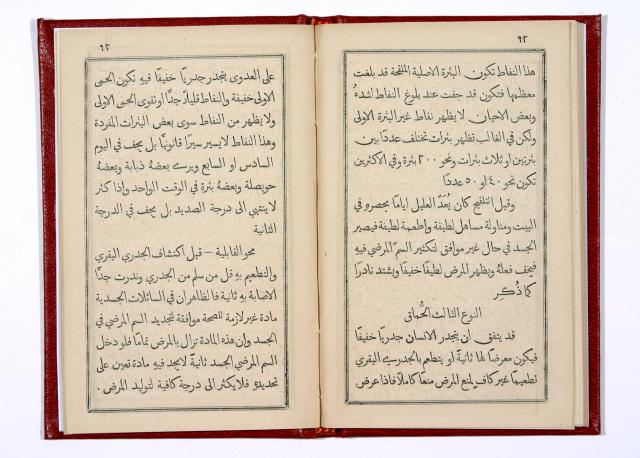 ٩٢
هذا النفاط تكون البثرة الاصلية الملقحة قد بلغت
معظمها فتكون قد جفت عند بلوغ النفاط اشدهُ
وبعض الاحيان لا يظهر نفاط غير البثرة الاولى
ولكن في الغالب تظهر بثرات تختلف عددًا بين
بثرتين او ثلاث بثرات ونحو ٢٠٠ بثرة وفي الاكثرين
تكون نحو ٤٠ او ٥٠ عددًا
وقبل التلقيح كان يُعَدُّ العليل ايامًا بحصره في
البيت ومناولة مساهل لطيفة واطعمة لطيفة فيصير
الجسد في حال غير موافق لتكثير السم المرضي فيهِ
فيخف فعلهُ ويظهر المرض لطيفًا خفيفًا ويشتد نادرًا
كما ذُكِر
النوع الثالث الحُماقي
قد يتفق ان يتجدر الانسان جدريًا خفيفًا
فيكون معرضًا لها ثانيةً او يتطعم بالجدري البقري
تطعيمًا غير كافٍ لمنع المرض منعًا كاملاً فاذا عرض
٩٣
على العدوى يتجدر جدريًا خفيفًا فيهِ تكون الحمى
الاولى خفيفة والنفاط قليلاً جدًّا او تقوى الحمى الاولى
ولا يظهر من النفاط سوى بعض البثرات المفردة
وهذا النفاط لا يسير سيرًا قانونيًّا بل يجف في اليوم
السادس او السابع ويرى بعضهُ ذبابة وبعضهُ
حويصلة وبعضهُ بثرة في الوقت الواحد واذا كثر
لا ينتهي الى درجة الصديد بل يجف في الدرجة
الثانية
محو القابلية – قبل اكتشاف الجدري البقري
والتطعيم بهِ قل من سلم من الجدري وندرت جدًّا
الاصابة بهِ ثانية فالظاهر ان في السائلات الجسدية
مادة غير لازمة للصحة موافقة لتجديد السم المرضي في
الجسد وان هذه المادة تزال بالمرض تمامًا فلو دخل
السم المرضي الجسد ثانيةً لا يجد فيهِ مادة تعين على
تجديدهِ فلا يكثر الى درجة كافية لتوليد المرض .